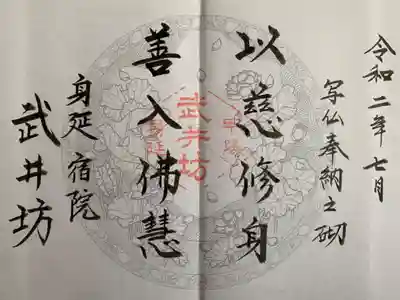 令和二年七月
写仏奉納之砌
以慈修身
善入佛慧
身延宿院
武井坊
武井坊